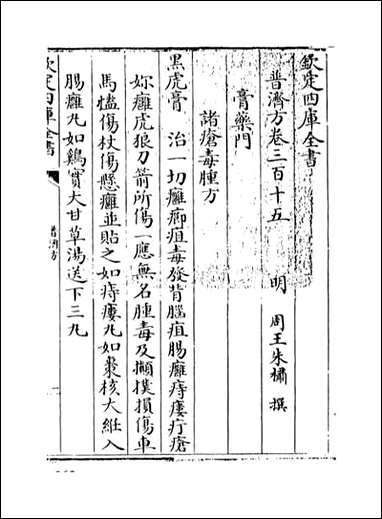 欽定四庫全書
普濟方卷三百十五
明 周王朱橚 撰
膏藥門
諸瘡毒腫方
黑虎膏 治一切癰癤疽毒發背腦疽腸癰痔瘻疔瘡
妳癰虎狼刀箭所傷一應無名腫毒及攧撲損傷車
馬磕傷杖傷懸癰並貼之如痔瘻丸如棗核大維入
腸癰丸如鷄實大甘草湯送下三丸
欽定四庫全書
普濟方
一